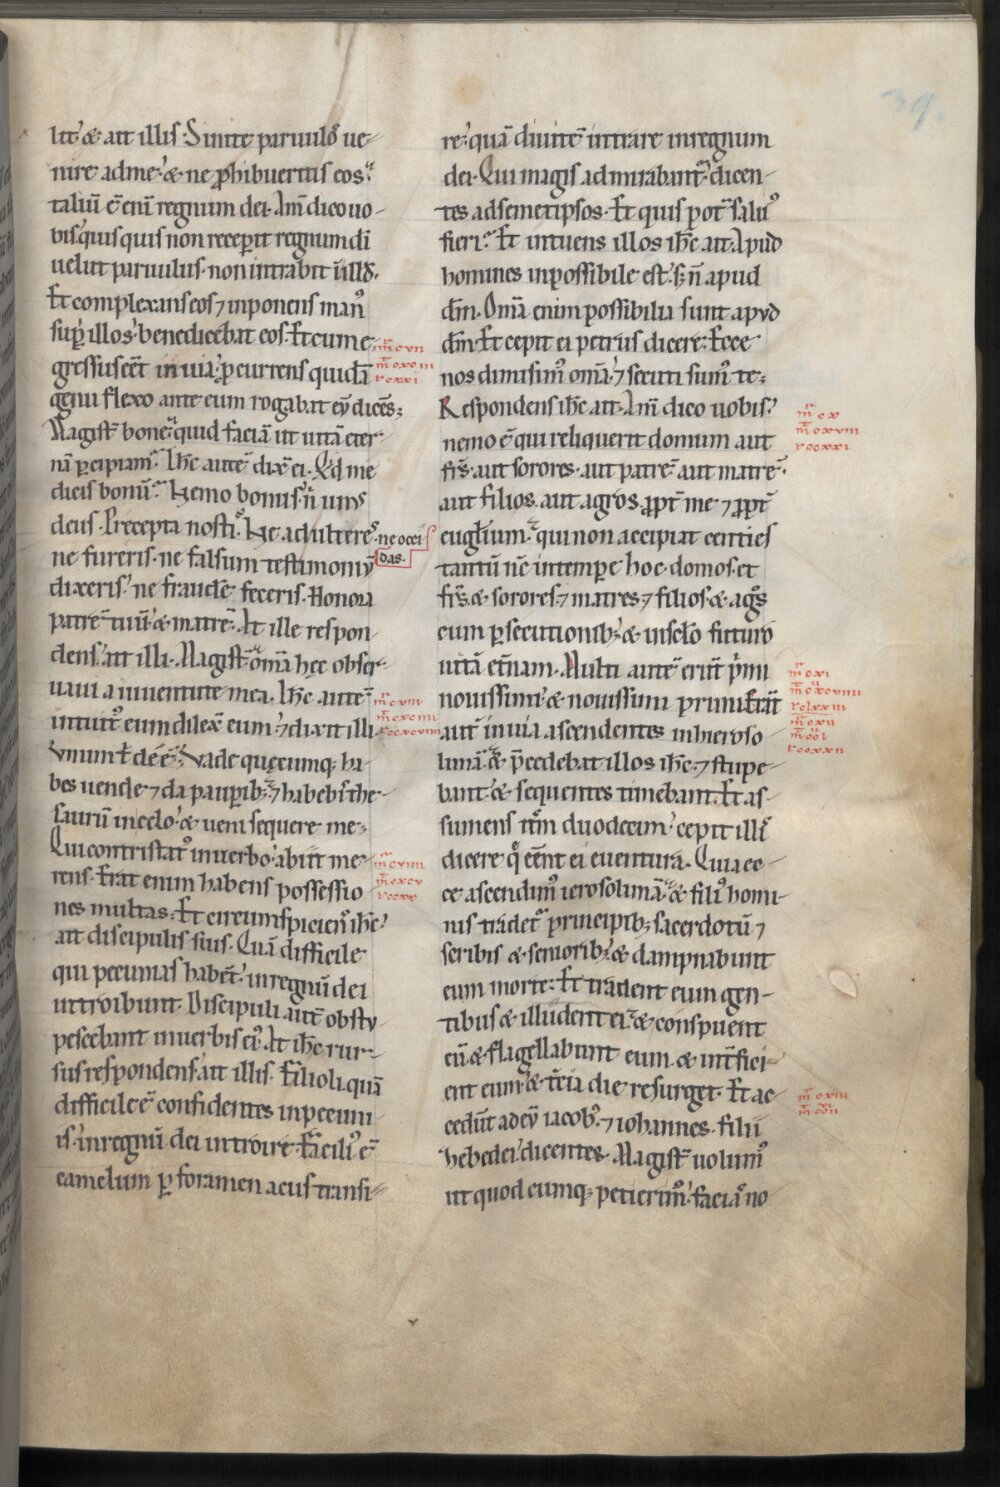 39.
lit᷒ & ait illis· Sinite paruulos ue-
nire ad me᷒ & ne ꝓhibueritis eos·
taliū ē eni̅ regnum dei· Am̅ dico uo-
bis quisquis non receperit regnum di̅
uelut paruulus· non intrabit in illd̅·
Et complexans eos ⁊ inponens man᷒
sup̱ illos benedicebat eos· Et cum e-
gressus eēt in uia᷒ p̱currens quida̅
genu flexo ante eum rogabat eū dicēs;
Magist̅ bone quid facia̅ ut uita̅ eter-
na̅ p̱cipiam· Ih̅c aute̅ dix̅ ei· Qd̅ me
dicis bonu̅· Nemo bonus n̅ unus
deus· Precepta nosti᷒ Ne adulteres᷒· ne occi
das·
ne fureris· ne falsum testimoniū
dixeris᷒ ne fraude̅ feceris· Honora
patre̅ tuu̅ & matre̅· At ille respon-
dens᷒ ait illi· Magist̅ om̅a hec obser-
uaui a iuuentute mea· Ih̅c aute̅
intuit᷒ eum dilex̅ eum· ⁊ dixit illi
Vnum t̅ de ē᷒ Vade quęcumq; ha-
bes uende ⁊ da paup̱ib; ⁊ habebis the-
saurū in celo᷒ & ueni sequere me;
Qui contristat᷒ in uerbo᷒ abiit me-
rens· Erat enim habens possessio
nes multas· Et circumspiciens ih̅c
ait discipulis suis· Qua̅ difficile
qui pecunias habe̅t᷒ in regnū dei
introibunt· Discipuli aut̅ obstu-
pescebant in uerbis ei᷒· At ih̅c rur-
sus respondens᷒ ait illis· Filioli qua̅
difficile ē confidentes in pecuni-
is᷒ in regnū dei introire· Facili᷒ ē
camelum p̱ foramen acus transi-
re᷒ qua̅ diuite̅ intrare in regnum
dei· Qui magis admirabant᷒ dicen-
tes ad semetipsos· Et quis pot̅ salu᷒
fieri· Et intuens illos ih̅c ait· Apud
homines inpossibile est᷒ s; n̅ apud
dm̅· Om̅a enim possibilia sunt apud
dm̅· Et cepit ei petrus dicere· Ecce
nos dimisim᷒ om̅a᷒ ⁊ secuti sum᷒ te;
Respondens ih̅c ait· Am̅ dico uobis᷒
nemo ē qui reliquerit domum aut
fr̅s· aut sorores· aut patre̅ aut matre̅·
aut filios· aut agros· ꝓpt̅ me ⁊ ꝓpt̅
eugl̅ium᷒ qui non accipiat centies
tantu̅ nc̅ in tempe̱ hoc· domos et
fr̅s & sorores ⁊ matres ⁊ filios & agros
cum p̱secutionib; & in sc̅lo futuro
uita̅ et̅nam· Multi aute̅ erūt p̱mi
nouissimi᷒ & nouissimi primi· Erāt
aut̅ in uia ascendentes in hieroso
lima̅· & p̅cedebat illos ih̅c· ⁊ stupe-
bant᷒ & sequentes timebant· Et as-
sumens it̅m duodecim᷒ cepit illis
dicere q̅ ee̅nt ei euentura· Quia ec-
ce ascendim᷒ ierosolima̅· & fili᷒ homi-
nis tradet᷒ principib; sacerdotū ⁊
scribis & seniorib; & dampnabunt
eum morte· Et tradent eum gen-
tibus & illudent ei· & conspuent
eū & flagellabunt eum & int̅fici-
ent eum᷒ & t̅cia die resurget· Et ac-
cedūt ad eū iacob᷒ ⁊ iohannes· filii
hebedei dicentes· Magist̅ uolum᷒
ut quodcumq; petierim᷒· facias no